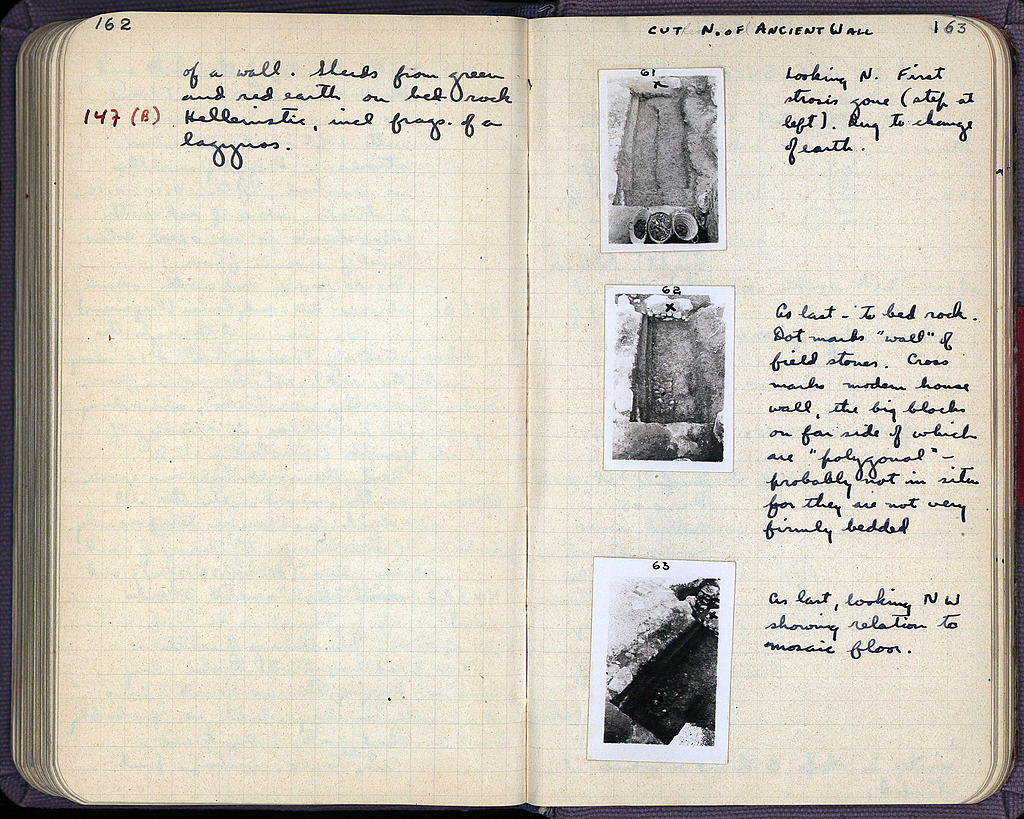 162
of a wall. Sherds from green
and red earth on bed rock
147 (B) Hellenistic, incl frags. of a
lagynos.
CUT N. OF ANCIENT WALL 163
61
X
Looking N. First
strosis gone (step at
left). Dug to change
of earth.
62
X
As last - to bed rock.
Dot marks "wall" of
field stones. Cross
marks modern house
wall, the big blocks
on far side of which
are "polygonal" -
probably not in situ
for they are not very
firmly bedded
63
As last, looking NW
showing relation to
mosaic floor.